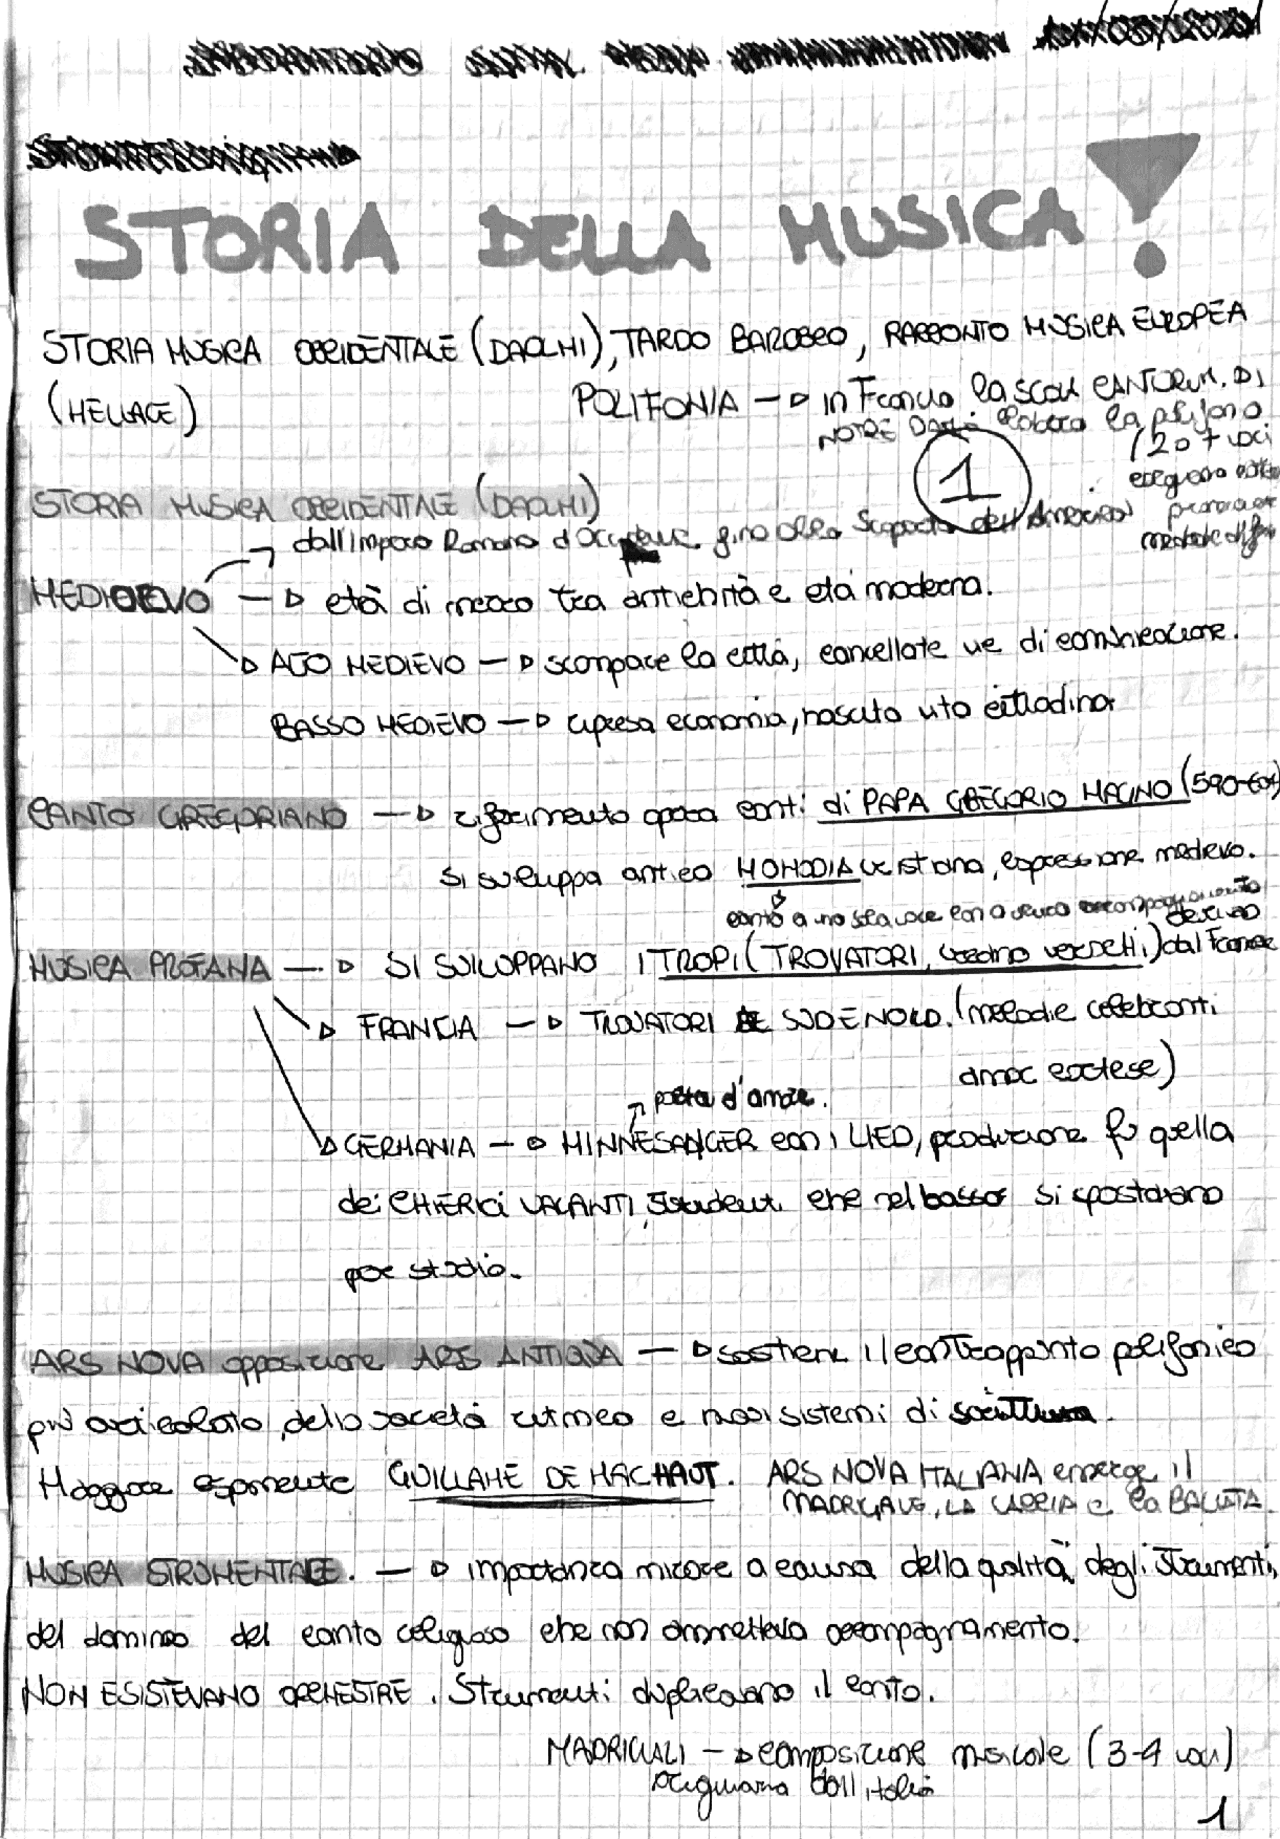 STORIA DELLA MUSICA!
STORIA MUSICA OCCIDENTALE (DAOLMI), TARDO BAROCCO, RACCONTO MUSICA EUROPEA
(MELLACE)
POLIFONIA → in Francia la scola CANTORUM. DI
NOTRE DAME elabora la polifonia
(2 o + voci
eseguono
melodie
1
STORIA MUSICA OCCIDENTALE (DAOLMI)
dall'impero Romano d'Occidente fino alla Scoperta dell'America
MEDIOEVO → età di mezzo tra antichità e età moderna.
→ ALTO MEDIEVO → scompare la città, cancellate vie di comunicazione.
BASSO MEDIEVO → ripresa economia, nascita vita cittadina
CANTO GREGORIANO → riferimento opera canti di PAPA GREGORIO MAGNO (590-604)
si sviluppa antica MONODIA cristiana, espressione medievo.
canto a una sola voce con o senza accompagnamento
derivano
MUSICA PROFANA → SI SVILUPPANO I TROPI (TROVATORI, versetti) dal Francese
→ FRANCIA → TROVATORI SUD E NORD. (melodie celebranti
amor cortese)
poeta d'amore.
→ GERMANIA → MINNESANGER con i LIED, produzione fu quella
dei CHIERICI VAGANTI, studenti che nel basso si spostavano
per studio.
ARS NOVA opposizione ARS ANTIQUA → sostiene il contrappunto polifonico
più articolato, della società ritmico e nuovi sistemi di scrittura.
Maggiore esponente GUILLAME DE MACHAUT. ARS NOVA ITALIANA emerge il
MADRIGALE, LA CACCIA e la BALLATA.
MUSICA STRUMENTALE. → importanza minore a causa della qualità degli strumenti,
del dominio del canto religioso che non ammetteva accompagnamento.
NON ESISTEVANO ORCHESTRE. Strumenti duplicavano il canto.
MADRIGALI → composizione musicale (3-4 voci)
originaria dall'italia
1